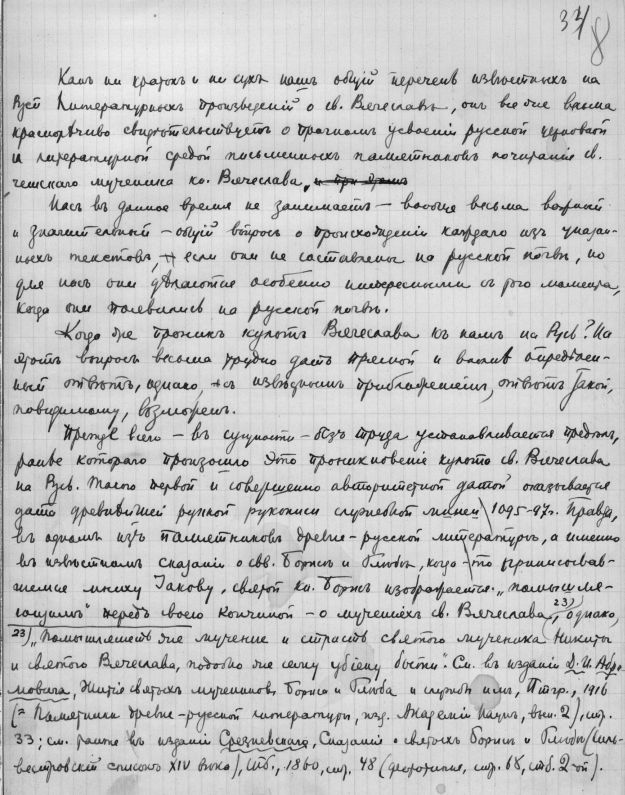 34 8
Какъ ни кратокъ и ни сухъ нашъ общій перечень извѣстныхъ на
Руси литературныхъ произведеній о св. Вячеславѣ, онъ все же весьма
краснорѣчиво свидѣтельствуетъ о прочномъ усвоеніи русской церковной
и литературной средой письменныхъ памятниковъ почитанія св.
чешскаго мученика кн. Вячеслава,
Насъ въ данное время не занимаетъ – вообще весьма важный
и значительный – общій вопросъ о происхожденіи каждаго изъ указан-
ныхъ текстовъ, если они не составлены на русской почвѣ, но
для насъ они дѣлаются особенно интересными съ того момента,
когда они появились на русской почвѣ.
Когда же проникъ культъ Вячеслава къ намъ на Русь? На
этотъ вопросъ весьма трудно дать прямой и вполнѣ опредѣлен-
ный отвѣтъ, однако, съ извѣстнымъ приближеніемъ, отвѣтъ такой,
повидимому, возможенъ.
Прежде всего – въ сущности – безъ труда устанавливается предѣлъ,
ранѣе котораго произошло это проникновеніе культа св. Вячеслава
на Русь. Такого первой и совершенно авторитетной датой оказывается
дата древнѣйшей русской рукописи служебной минеи 1095-97г. Правда,
въ одномъ изъ памятниковъ древне-русской литературы, а именно
въ извѣстномъ сказаніи о свв. Борисѣ и Глѣбѣ, когда-то приписовав-
шемся мниху Іакову, святой кн. Борисъ изображается „помышля-
ющимъ" передъ своею кончиной – о мученіяхъ св. Вячеслава,²³⁾ однако,
23) „Помышляшеть же мучение и страсть святого мученика Никиты
и святого Вячеслава, подобно же сему убіену бывшу". См. въ изданіи Д. И. Абра-
мовича, Житія святыхъ мучениковъ Бориса и Глѣба и службы имъ, Птгр., 1916
(= Памятники древне-русской литературы, изд. Академіи Наукъ, вып. 2), стр.
33; см. ранѣе въ изданіи Срезневскаго, Сказанія о святыхъ Борисѣ и Глѣбѣ (Силь-
вестровскій списокъ XIV вѣка), Спб., 1860, стр. 48 (фототипія, стр. 68, стб. 2-ой).